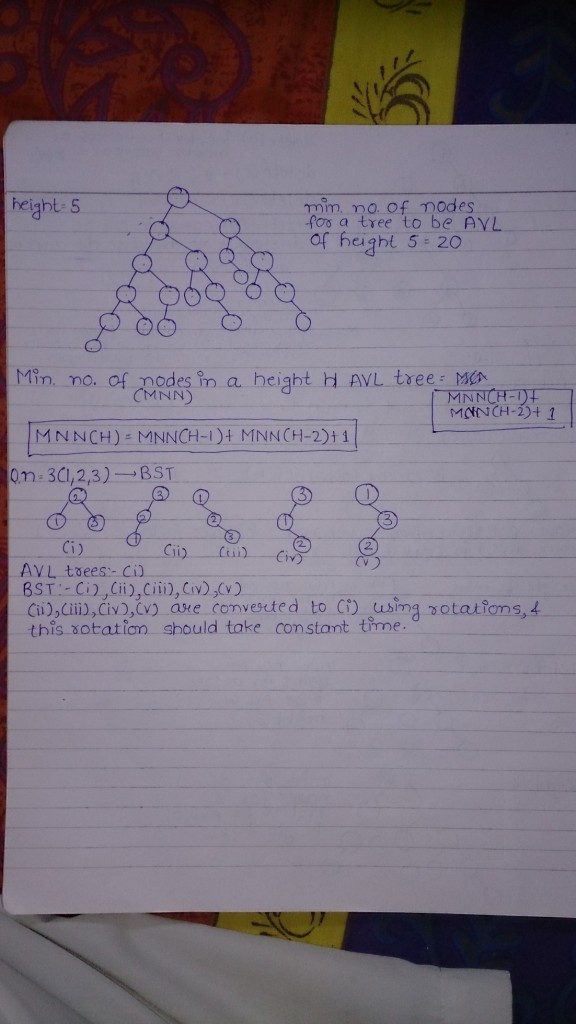 height=5
min. no. of nodes
for a tree to be AVL
of height 5 = 20
Min. no. of nodes in a height H AVL tree =
(MNN)
MNN(H-1)+
MNN(H-2)+ 1
MNN(H) = MNN(H-1)+ MNN(H-2)+1
Q.n=3(1,2,3) → BST
2 3 1 3 1
1 3 2 2 1 3
1 3 2 2
(i) (ii) (iii) (iv) (v)
AVL trees:- (i)
BST:- (i), (ii), (iii), (iv), (v)
(ii), (iii), (iv), (v) are converted to (i) using rotations, &
this rotation should take constant time.